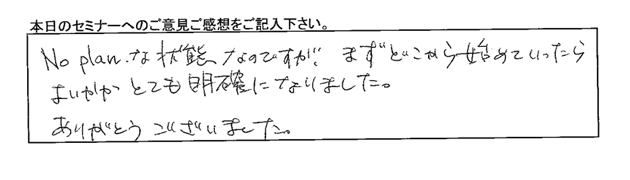 本日のセミナーへのご意見ご感想をご記入下さい。
No planな状態なのですが、まずどこから始めていったら
よいかがとても明確になりました。
ありがとうございました。